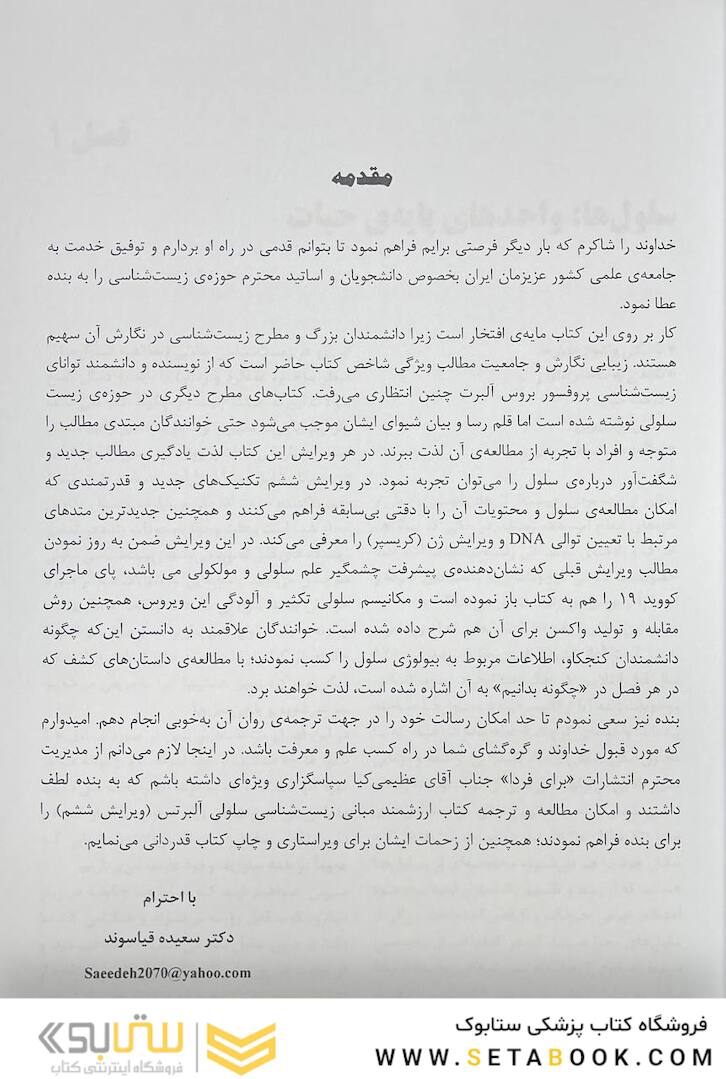 مقدمه
خداوند را شاکرم که بار دیگر فرصتی برایم فراهم نمود تا بتوانم قدمی در راه او بردارم و توفیق خدمت به
جامعه‌ی علمی کشور عزیزمان ایران بخصوص دانشجویان و اساتید محترم حوزه‌ی زیست‌شناسی را به بنده
عطا نمود.
کار بر روی این کتاب مایه‌ی افتخار است زیرا دانشمندان بزرگ و مطرح زیست‌شناسی در نگارش آن سهیم
هستند. زیبایی نگارش و جامعیت مطالب ویژگی شاخص کتاب حاضر است که از نویسنده و دانشمند توانای
زیست‌شناسی پروفسور بروس آلبرت چنین انتظاری می‌رفت. کتاب‌های مطرح دیگری در حوزه‌ی زیست
سلولی نوشته شده است اما قلم رسا و بیان شیوای ایشان موجب می‌شود حتی خوانندگان مبتدی مطالب را
متوجه و افراد با تجربه از مطالعه‌ی آن لذت ببرند. در هر ویرایش این کتاب لذت یادگیری مطالب جدید و
شگفت‌آور درباره‌ی سلول را می‌توان تجربه نمود. در ویرایش ششم تکنیک‌های جدید و قدرتمندی که
امکان مطالعه‌ی سلول و محتویات آن را با دقتی بی‌سابقه فراهم می‌کنند و همچنین جدیدترین متدهای
مرتبط با تعیین توالی DNA و ویرایش ژن (کریسپر) را معرفی می‌کند. در این ویرایش ضمن به روز نمودن
مطالب ویرایش قبلی که نشان‌دهنده‌ی پیشرفت چشمگیر علم سلولی و مولکولی می باشد، پای ماجرای
کووید ۱۹ را هم به کتاب باز نموده است و مکانیسم سلولی تکثیر و آلودگی این ویروس، همچنین روش
مقابله و تولید واکسن برای آن هم شرح داده شده است. خوانندگان علاقمند به دانستن این‌که چگونه
دانشمندان کنجکاو، اطلاعات مربوط به بیولوژی سلول را کسب نمودند؛ با مطالعه‌ی داستان‌های کشف که
در هر فصل در «چگونه بدانیم» به آن اشاره شده است، لذت خواهند برد.
بنده نیز سعی نمودم تا حد امکان رسالت خود را در جهت ترجمه‌ی روان آن به‌خوبی انجام دهم. امیدوارم
که مورد قبول خداوند و گره‌گشای شما در راه کسب علم و معرفت باشد. در اینجا لازم می‌دانم از مدیریت
محترم انتشارات «برای فردا» جناب آقای عظیمی‌کیا سپاسگزاری ویژه‌ای داشته باشم که به بنده لطف
داشتند و امکان مطالعه و ترجمه کتاب ارزشمند مبانی زیست‌شناسی سلولی آلبرتس (ویرایش ششم) را
برای بنده فراهم نمودند؛ همچنین از زحمات ایشان برای ویراستاری و چاپ کتاب قدردانی می‌نمایم.
با احترام
دکتر سعیده قیاسوند
Saeedeh2070@yahoo.com
فروشگاه کتاب پزشکی ستابوک
WWW.SETABOOK.COM
ستابوک
فروشگاه اینترنتی کتاب